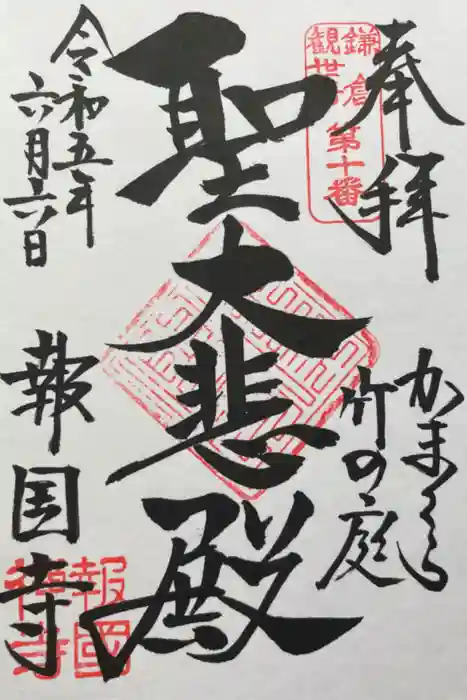 奉拝
鎌倉
観世
第十番
かまくら
竹の庭
聖大悲殿
令和五年
六月六日
報国寺
報國